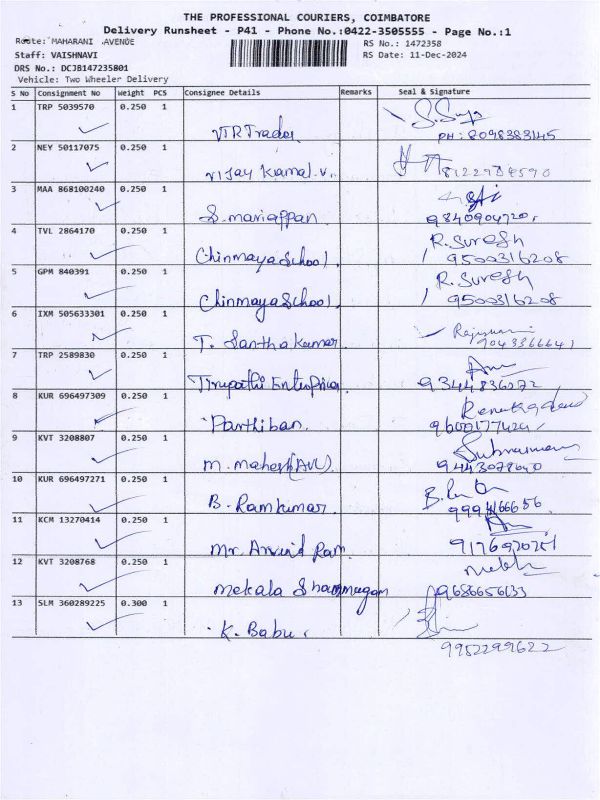 THE PROFESSIONAL COURIERS, COIMBATORE
Delivery Runsheet - P41 - Phone No.:0422-3505555 - Page No.:1
Route: MAHARANI AVENUE RS No.: 1472358
Staff: VAISHNAVI RS Date: 11-Dec-2024
DRS No.: DCJB147235801
Vehicle: Two Wheeler Delivery
S No Consignment No Weight PCS Consignee Details Remarks Seal & Signature
1 TRP 5039570 0.250 1
VTR Trader PH: 8098383145
2 NEY 50117075 0.250 1
Vijay Kamal.V.
3 MAA 868100240 0.250 1
S. mariappan 9840904720
4 TVL 2864170 0.250 1 R. Suresh
Chinmaya School. 9500316208
5 GPM 840391 0.250 1 R. Suresh
Chinmaya School. 9500316208
6 IXM 505633301 0.250 1
T. Santhakumar 9043366641
7 TRP 2589830 0.250 1
Tirupathi Enterprices 9344836272
8 KUR 696497309 0.250 1
Parthiban.
9 KVT 3208807 0.250 1
M. Mahesh (AVL)
10 KUR 696497271 0.250 1
B. Ramkumar.
11 KCM 13270414 0.250 1
Mr. Arvind Ram
12 KVT 3208768 0.250 1
Mekala Shanmugam 9686656133
13 SLM 360289225 0.300 1
K. Babu
9952299622